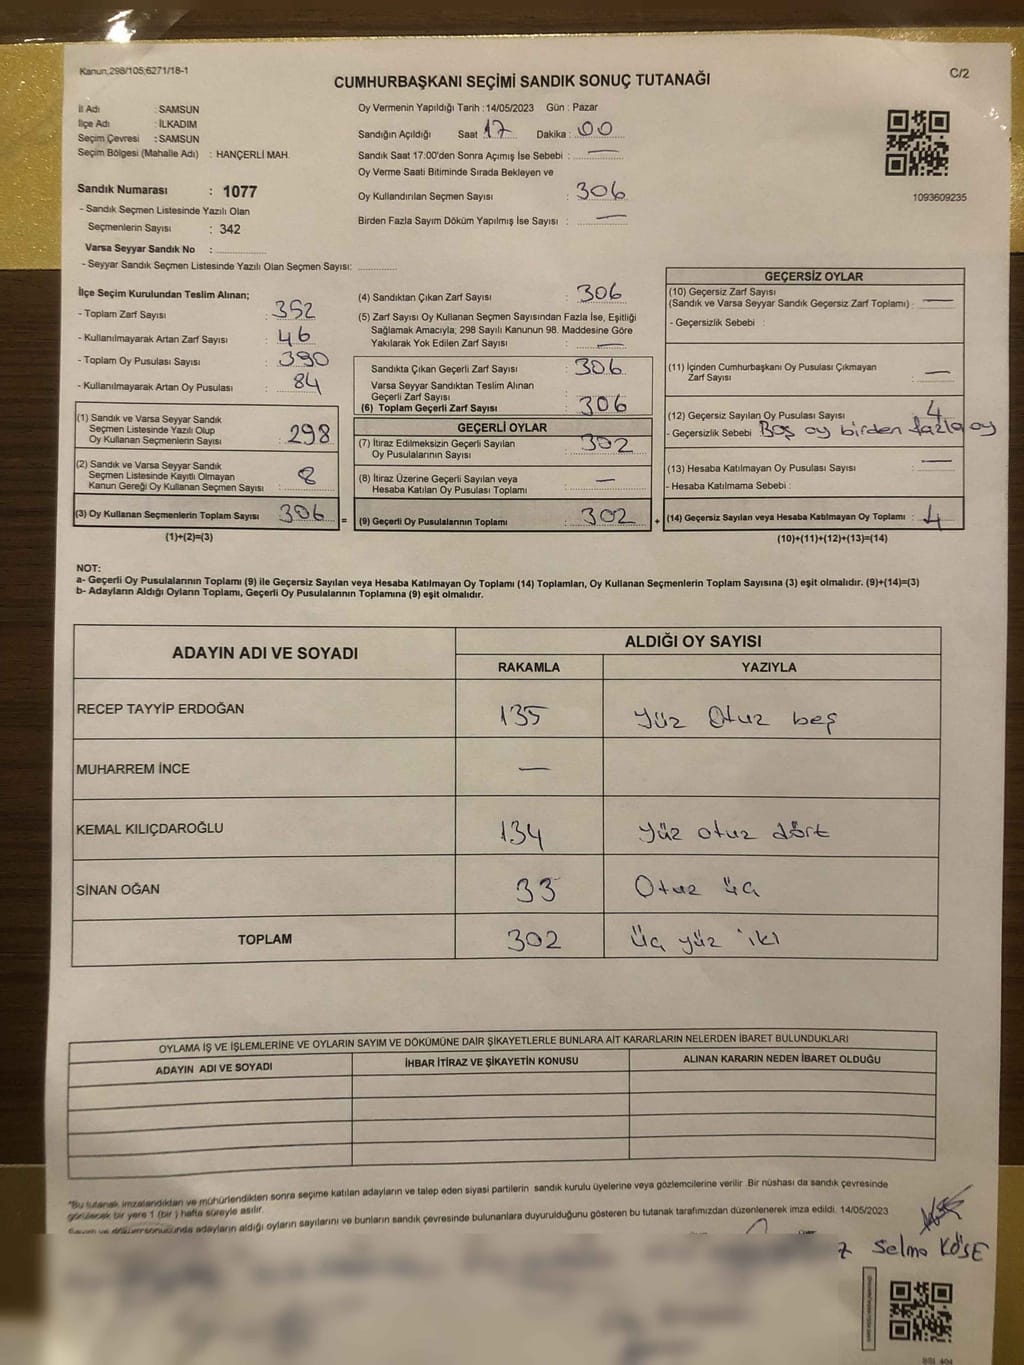 Kanun,298/105;6271/18-1
C/2
CUMHURBAŞKANI SEÇİMİ SANDIK SONUÇ TUTANAĞI
İl Adı : SAMSUN
İlçe Adı : İLKADIM
Seçim Çevresi : SAMSUN
Seçim Bölgesi (Mahalle Adı) : HANÇERLİ MAH.
Sandık Numarası : 1077
- Sandık Seçmen Listesinde Yazılı Olan
Seçmenlerin Sayısı : 342
Varsa Seyyar Sandık No :
- Seyyar Sandık Seçmen Listesinde Yazılı Olan Seçmen Sayısı:
Oy Vermenin Yapıldığı Tarih : 14/05/2023 Gün : Pazar
Sandığın Açıldığı Saat 17 Dakika : 00
Sandık Saat 17:00'den Sonra Açımış İse Sebebi : —
Oy Verme Saati Bitiminde Sırada Bekleyen ve
Oy Kullandırılan Seçmen Sayısı : 306
Birden Fazla Sayım Döküm Yapılmış İse Sayısı : —
1093609235
İlçe Seçim Kurulundan Teslim Alınan;
- Toplam Zarf Sayısı : 352
- Kullanılmayarak Artan Zarf Sayısı : 46
- Toplam Oy Pusulası Sayısı : 390
- Kullanılmayarak Artan Oy Pusulası : 84
(1) Sandık ve Varsa Seyyar Sandık
Seçmen Listesinde Yazılı Olup
Oy Kullanan Seçmenlerin Sayısı : 298
(2) Sandık ve Varsa Seyyar Sandık
Seçmen Listesinde Kayıtlı Olmayan
Kanun Gereği Oy Kullanan Seçmen Sayısı : 8
(3) Oy Kullanan Seçmenlerin Toplam Sayısı : 306 =
(1)+(2)=(3)
(4) Sandıktan Çıkan Zarf Sayısı : 306
(5) Zarf Sayısı Oy Kullanan Seçmen Sayısından Fazla İse, Eşitliği
Sağlamak Amacıyla; 298 Sayılı Kanunun 98. Maddesine Göre
Yakılarak Yok Edilen Zarf Sayısı : —
Sandıkta Çıkan Geçerli Zarf Sayısı : 306
Varsa Seyyar Sandıktan Teslim Alınan
Geçerli Zarf Sayısı :
(6) Toplam Geçerli Zarf Sayısı : 306
GEÇERLİ OYLAR
(7) İtiraz Edilmeksizin Geçerli Sayılan
Oy Pusulalarının Sayısı : 302
(8) İtiraz Üzerine Geçerli Sayılan veya
Hesaba Katılan Oy Pusulası Toplamı : —
(9) Geçerli Oy Pusulalarının Toplamı : 302 +
GEÇERSİZ OYLAR
(10) Geçersiz Zarf Sayısı
(Sandık ve Varsa Seyyar Sandık Geçersiz Zarf Toplamı) : —
- Geçersizlik Sebebi :
(11) İçinden Cumhurbaşkanı Oy Pusulası Çıkmayan
Zarf Sayısı : —
(12) Geçersiz Sayılan Oy Pusulası Sayısı : 4
- Geçersizlik Sebebi Boş oy birden fazla oy
(13) Hesaba Katılmayan Oy Pusulası Sayısı : —
- Hesaba Katılmama Sebebi :
(14) Geçersiz Sayılan veya Hesaba Katılmayan Oy Toplamı : 4
(10)+(11)+(12)+(13)=(14)
NOT:
a- Geçerli Oy Pusulalarının Toplamı (9) ile Geçersiz Sayılan veya Hesaba Katılmayan Oy Toplamı (14) Toplamları, Oy Kullanan Seçmenlerin Toplam Sayısına (3) eşit olmalıdır. (9)+(14)=(3)
b- Adayların Aldığı Oyların Toplamı, Geçerli Oy Pusulalarının Toplamına (9) eşit olmalıdır.
ADAYIN ADI VE SOYADI ALDIĞI OY SAYISI
RAKAMLA YAZIYLA
RECEP TAYYİP ERDOĞAN 135 Yüz Otuz beş
MUHARREM İNCE —
KEMAL KILIÇDAROĞLU 134 Yüz otuz dört
SİNAN OĞAN 33 Otuz üç
TOPLAM 302 Üç yüz iki
OYLAMA İŞ VE İŞLEMLERİNE VE OYLARIN SAYIM VE DÖKÜMÜNE DAİR ŞİKAYETLERLE BUNLARA AİT KARARLARIN NELERDEN İBARET BULUNDUKLARI
ADAYIN ADI VE SOYADI İHBAR İTİRAZ VE ŞİKAYETİN KONUSU ALINAN KARARIN NEDEN İBARET OLDUĞU
"Bu tutanak imzalandıktan ve mühürlendikten sonra seçime katılan adayların ve talep eden siyasi partilerin sandık kurulu üyelerine veya gözlemcilerine verilir. Bir nüshası da sandık çevresinde
görülecek bir yere 1 (bir) hafta süreyle asılır.
Sayım ve döküm sonucunda adayların aldığı oyların sayılarını ve bunların sandık çevresinde bulunanlara duyurulduğunu gösteren bu tutanak tarafımızdan düzenlenerek imza edildi. 14/05/2023
Selma KÖSE